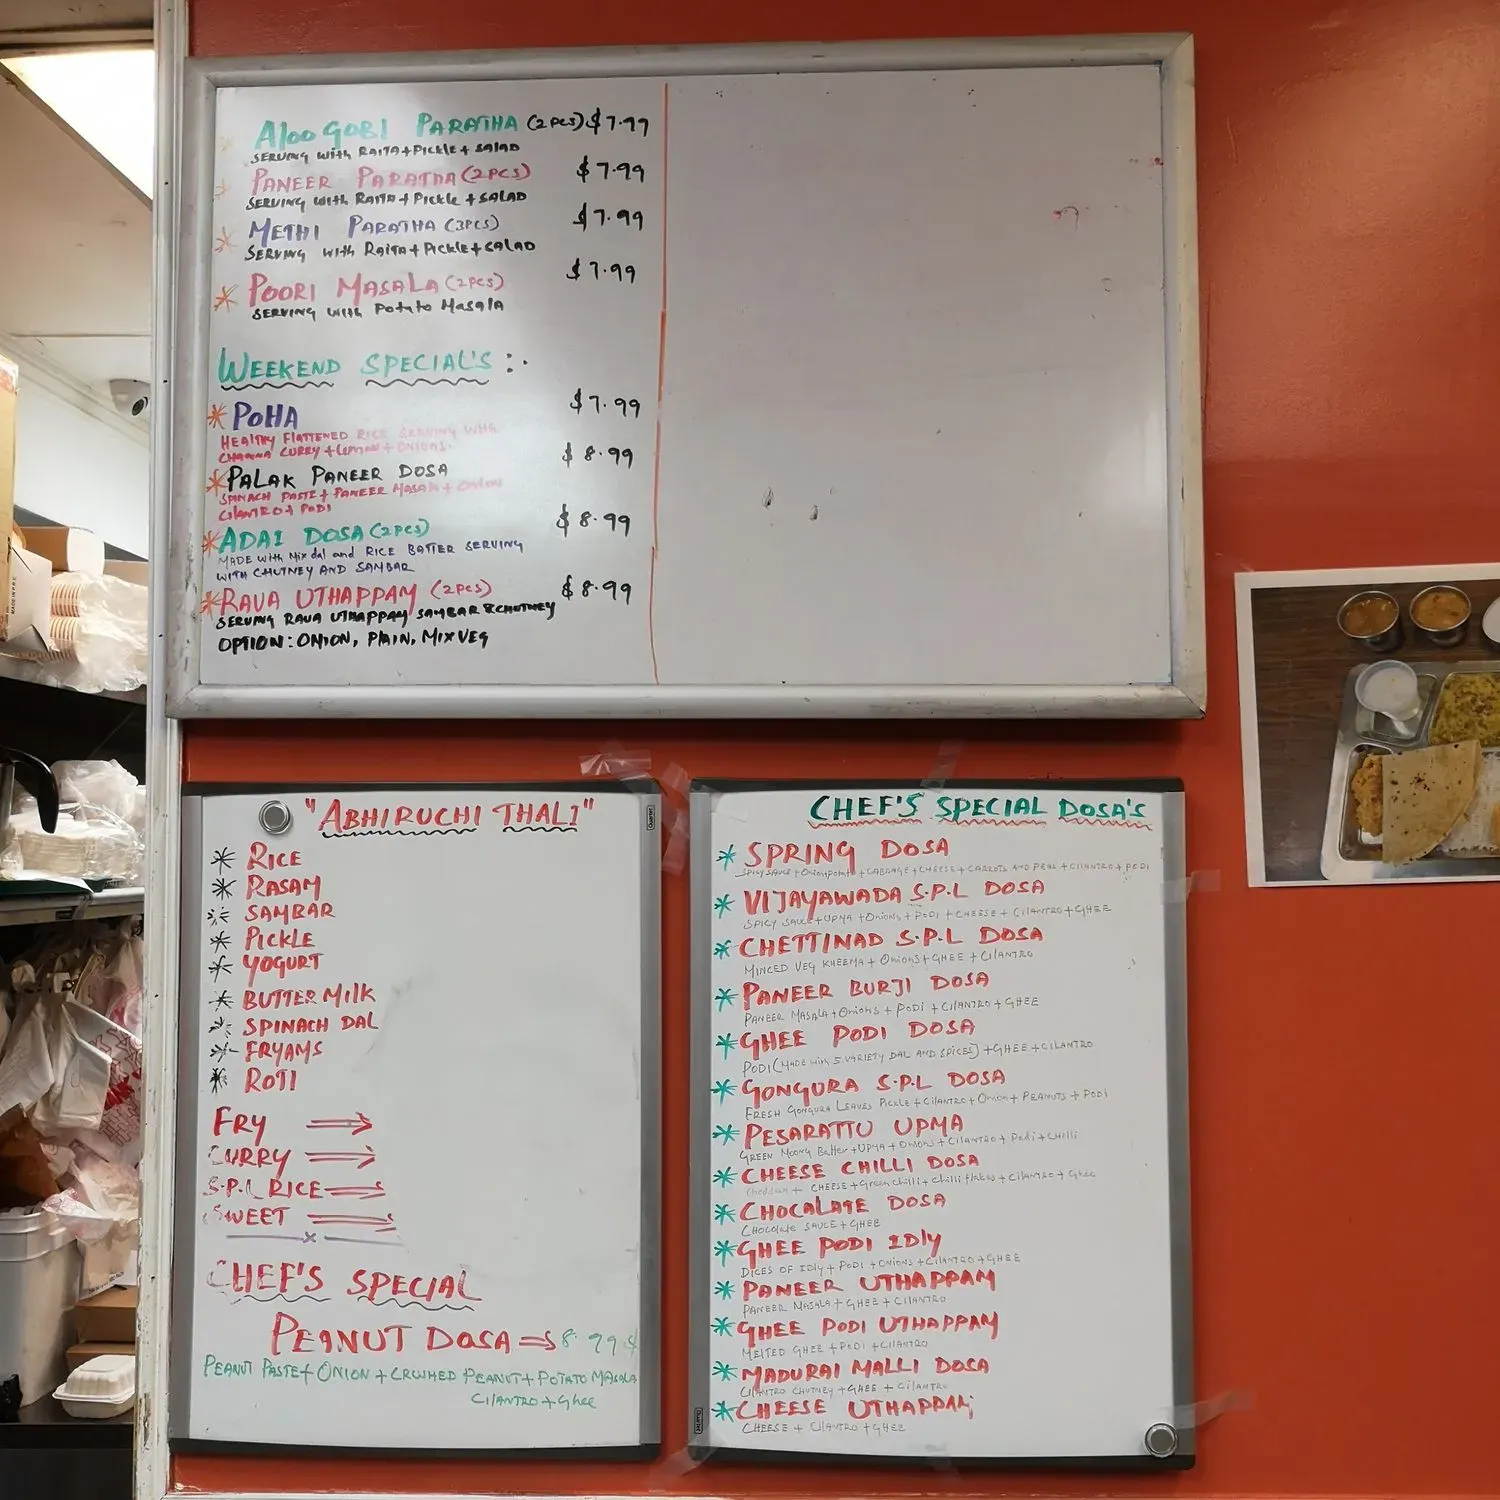 * Aloo Gobi Paratha (2pcs) $7.99
Serving with Raita + Pickle + Salad
* Paneer Paratha (2pcs) $7.99
Serving with Raita + Pickle + Salad
* Methi Paratha (3pcs) $7.99
Serving with Raita + Pickle + Salad
* Poori Masala (2pcs) $7.99
Serving with Potato Masala
Weekend Special's :.
* Poha $7.99
Healthy Flattened Rice Serving with
Channa Curry + Lemon + Onions
* Palak Paneer Dosa $8.99
Spinach Paste + Paneer Masala + Onion
Cilantro + Podi
* Adai Dosa (2pcs) $8.99
Made with Mix dal and Rice Batter Serving
with Chutney and Sambar
* Rava Uthappam (2pcs) $8.99
Serving Rava Uthappam Sambar & Chutney
Option: Onion, Plain, Mix Veg
"Abhiruchi Thali"
* Rice
* Rasam
* Sambar
* Pickle
* Yogurt
* Butter Milk
* Spinach Dal
* Fryams
* Roti
Fry ⇒
Curry ⇒
S.P.L Rice ⇒
Sweet ⇒
x
Chef's Special
Peanut Dosa ⇒ $8.99
Peanut Paste + Onion + Crushed Peanut + Potato Masala
Cilantro + Ghee
Chef's Special Dosa's
* Spring Dosa
Spicy Sauce + Onion Potato + Cabbage + Cheese + Carrots and Peas + Cilantro + Podi
* Vijayawada S.P.L Dosa
Spicy Sauce + Upma + Onions + Podi + Cheese + Cilantro + Ghee
* Chettinad S.P.L Dosa
Minced Veg Kheema + Onions + Ghee + Cilantro
* Paneer Burji Dosa
Paneer Masala + Onions + Podi + Cilantro + Ghee
* Ghee Podi Dosa
Podi (Made with 5 variety Dal and Spices) + Ghee + Cilantro
* Gongura S.P.L Dosa
Fresh Gongura Leaves Pickle + Cilantro + Onion + Peanuts + Podi
* Pesarattu Upma
Green Moong Batter + Upma + Onions + Cilantro + Podi + Chilli
* Cheese Chilli Dosa
Cheddar + Cheese + Green Chilli + Chilli Flakes + Cilantro + Ghee
* Chocalate Dosa
Chocolate Sauce + Ghee
* Ghee Podi Idly
Dices of Idly + Podi + Onions + Cilantro + Ghee
* Paneer Uthappam
Paneer Masala + Ghee + Cilantro
* Ghee Podi Uthappam
Melted Ghee + Podi + Cilantro
* Madurai Malli Dosa
Cilantro Chutney + Ghee + Cilantro
* Cheese Uthappam
Cheese + Cilantro + Ghee